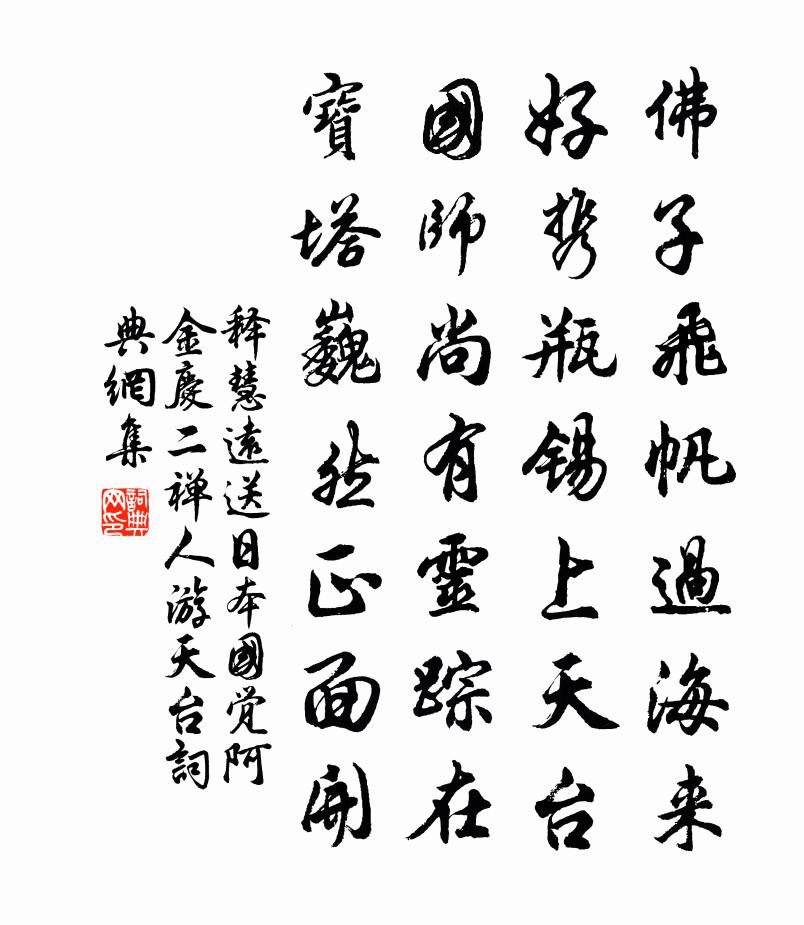 佛子飛帆過海来
好携瓶錫上天台
國師尚有靈踪在
寶塔巍然正面開
释慧遠送日本國覚阿
金慶二禅人游天台詞
典網集
詞典网印